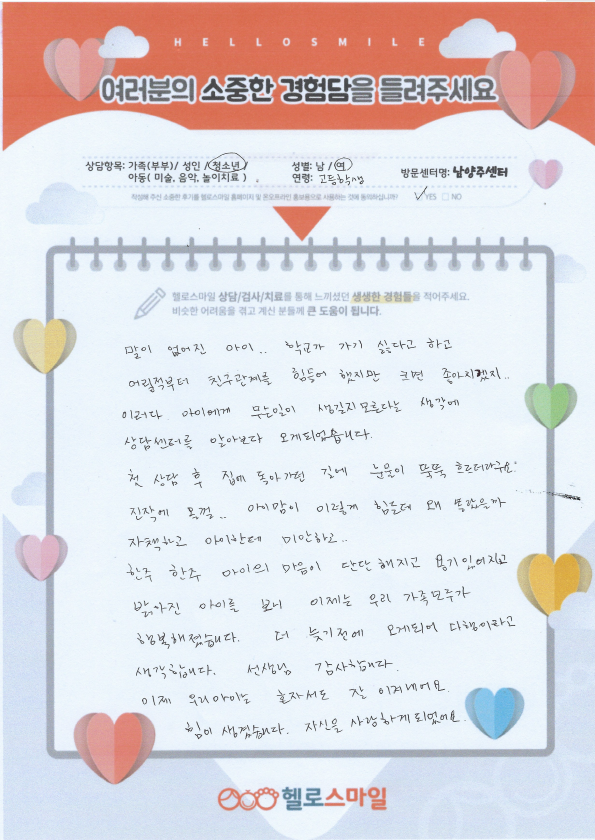 HELLOSMILE
여러분의 소중한 경험담을 들려주세요
상담항목: 가족(부부)/ 성인 /청소년/ 성별: 남 / 여 방문센터명: 남양주센터
아동( 미술, 음악, 놀이치료 ) 연령: 고등학생
작성해 주신 소중한 후기를 헬로스마일 홈페이지 및 온오프라인 홍보용으로 사용하는 것에 동의하십니까? YES NO
헬로스마일 상담/검사/치료를 통해 느끼셨던 생생한 경험들을 적어주세요.
비슷한 어려움을 겪고 계신 분들께 큰 도움이 됩니다.
말이 없어진 아이.. 학교가 가기 싫다고 하고
어릴적부터 친구관계를 힘들어 했지만 크면 좋아지겠지..
이러다 아이에게 무슨일이 생길지모른다는 생각에
상담센터를 알아보다 오게되었습니다.
첫 상담 후 집에 돌아가던 길에 눈물이 뚝뚝 흐르더라구요
진작에 올걸.. 아이맘이 이렇게 힘든데 왜 몰랐을까
자책하고 아이한테 미안하고..
한주 한주 아이의 마음이 단단해지고 용기있어지고
밝아진 아이를 보니 이제는 우리 가족모두가
행복해졌습니다. 더 늦기전에 오게되어 다행이라고
생각합니다. 선생님 감사합니다.
이제 우리아이는 혼자서도 잘 이겨내어요.
힘이 생겼습니다. 자신을 사랑하게되었어요.
헬로스마일